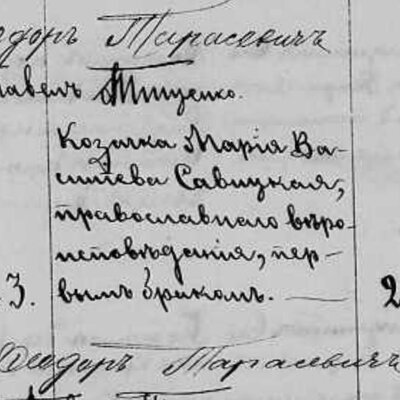 одоръ Тарасевичъ
Павелъ Тищенко.
Козачка Марія Ва-
силіева Савицкая,
православнаго вѣро-
исповѣданія, пер-
3. вымъ бракомъ. 2
Ѳеодоръ Тарасевичъ